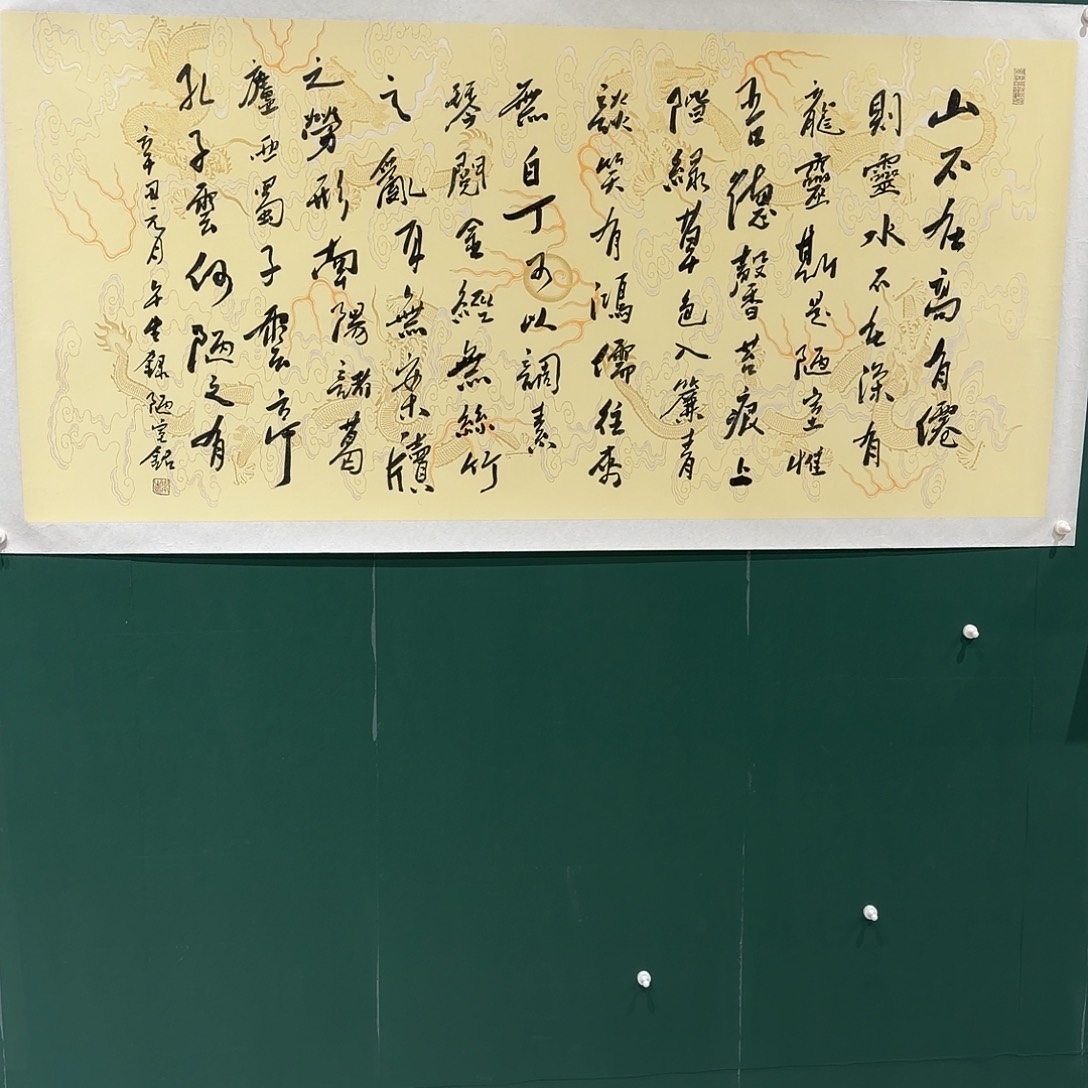 山不在高有僊
則靈水不在深有
龍靈斯是陋室惟
吾德馨苔痕上
階綠草色入簾青
談笑有鴻儒往來
無白丁可以調素
琴閱金經無絲竹
之亂耳無案牘
之勞形南陽諸葛
廬西蜀子雲亭
孔子雲何陋之有
辛丑元月錄陋室銘